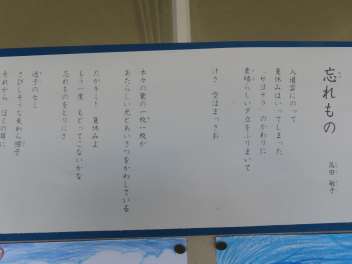 忘れもの
高田 敏子
入道雲にのって
夏休みはいってしまった
「サヨナラ」のかわりに
素晴らしい夕立をふりまいて
けさ 空はまっさお
木々の葉の一枚一枚が
あたらしい光とあいさつをかわしている
だがキミ! 夏休みよ
もう一度 もどってこないかな
忘れものをとりにさ
迷子のセミ
さびしそうな麦わら帽子
それから ぼくの耳に